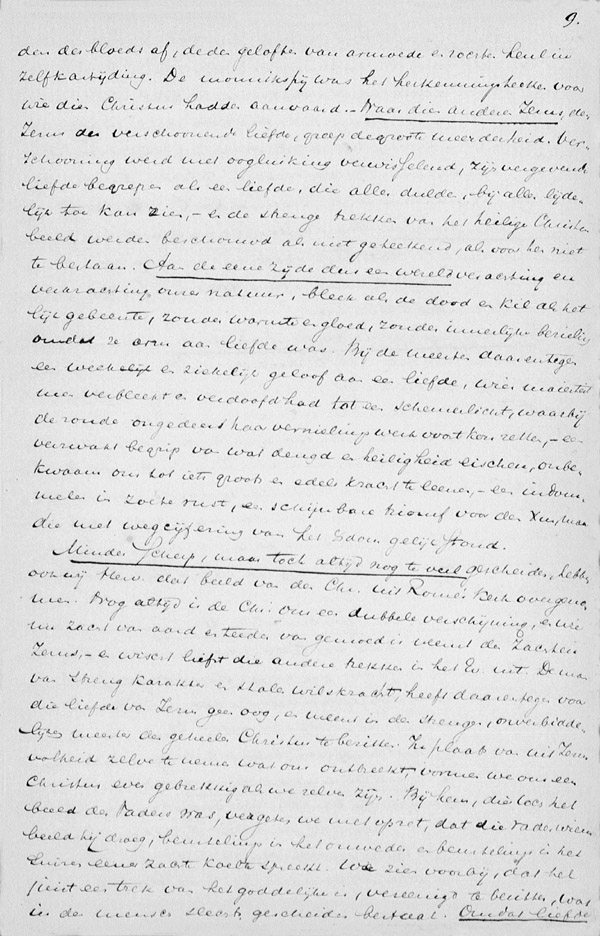 9.
den des bloeds af, deden geloften van armoede en zochten heul in
zelfkastijding. De monnikspij was het herkenningsteeken voor
wie dien Christus hadden aanvaard. - Naar dien anderen Jezus, den
Jezus der verschoonende liefde, greep de groote meerderheid. Ver-
schooning werd met oogluiking verwisseld, zijn vergevende
liefde begrepen als een liefde, die alles duldde, bij alles lijde-
lijk toe kon zien, - en de strenge trekken van het heilige Christus
beeld werden beschouwd als niet geteekend, als voor hen niet
te bestaan. Aan de eene zijde dus een wereldverachting en
verkrachting onzer natuur, bleek als de dood en kil als het
lijkgebeente, zonder warmte en gloed, zonder innerlijke bezieling
omdat ze arm aan liefde was. Bij de meesten daarentegen
een weekelijk en ziekelijk geloof aan een liefde, wier majesteit
men verbleekt en verdoofd had tot een schemerlicht, waarbij
de zonde ongedeerd haar vernielingswerk voort kon zetten, - een
verzwakt begrip van wat deugd en heiligheid eischen, onbe-
kwaam om tot iets groots en edels kracht te leenen, - een indom-
melen in zoete rust, een schijnbare triomf voor den
die met wegcijfering van het gelijk stond.
Minder scherp, maar toch altijd nog te veel gescheiden, hebben
ook wij Herv. dat beeld van den Chr. uit Rome's Kerk overgeno-
men. Nog altijd is de Chr. ons een dubbele verschijning, en wie
nu zacht van aard en teeder van gemoed is neemt den zachten
Jezus, - en wischt liefst die andere trekken in het Ev. uit. De man
van streng karakter en stale wilskracht, heeft daarentegen voor
die liefde van Jezus geen oog, en meent in den strengen, onverbidde-
lijken meester den geheelen Christus te bezitten. In plaats van uit Jezus
volheid zelve te nemen wat ons ontbreekt, vormen we ons een
Christus even gebrekkig als we zelven zijn. Bij hem, die toch het
beeld des Vaders was, vergeten we met opzet, dat die Vader, wiens
beeld hij droeg, beurtelings in het onweder en beurtelings in het
suizen eener zachte koelte spreekt. We zien voorbij, dat het
juist een trek van het goddelijke is, vereenigd te bezitten, wat
in den mensch steeds gescheiden bestaat. Omdat liefde